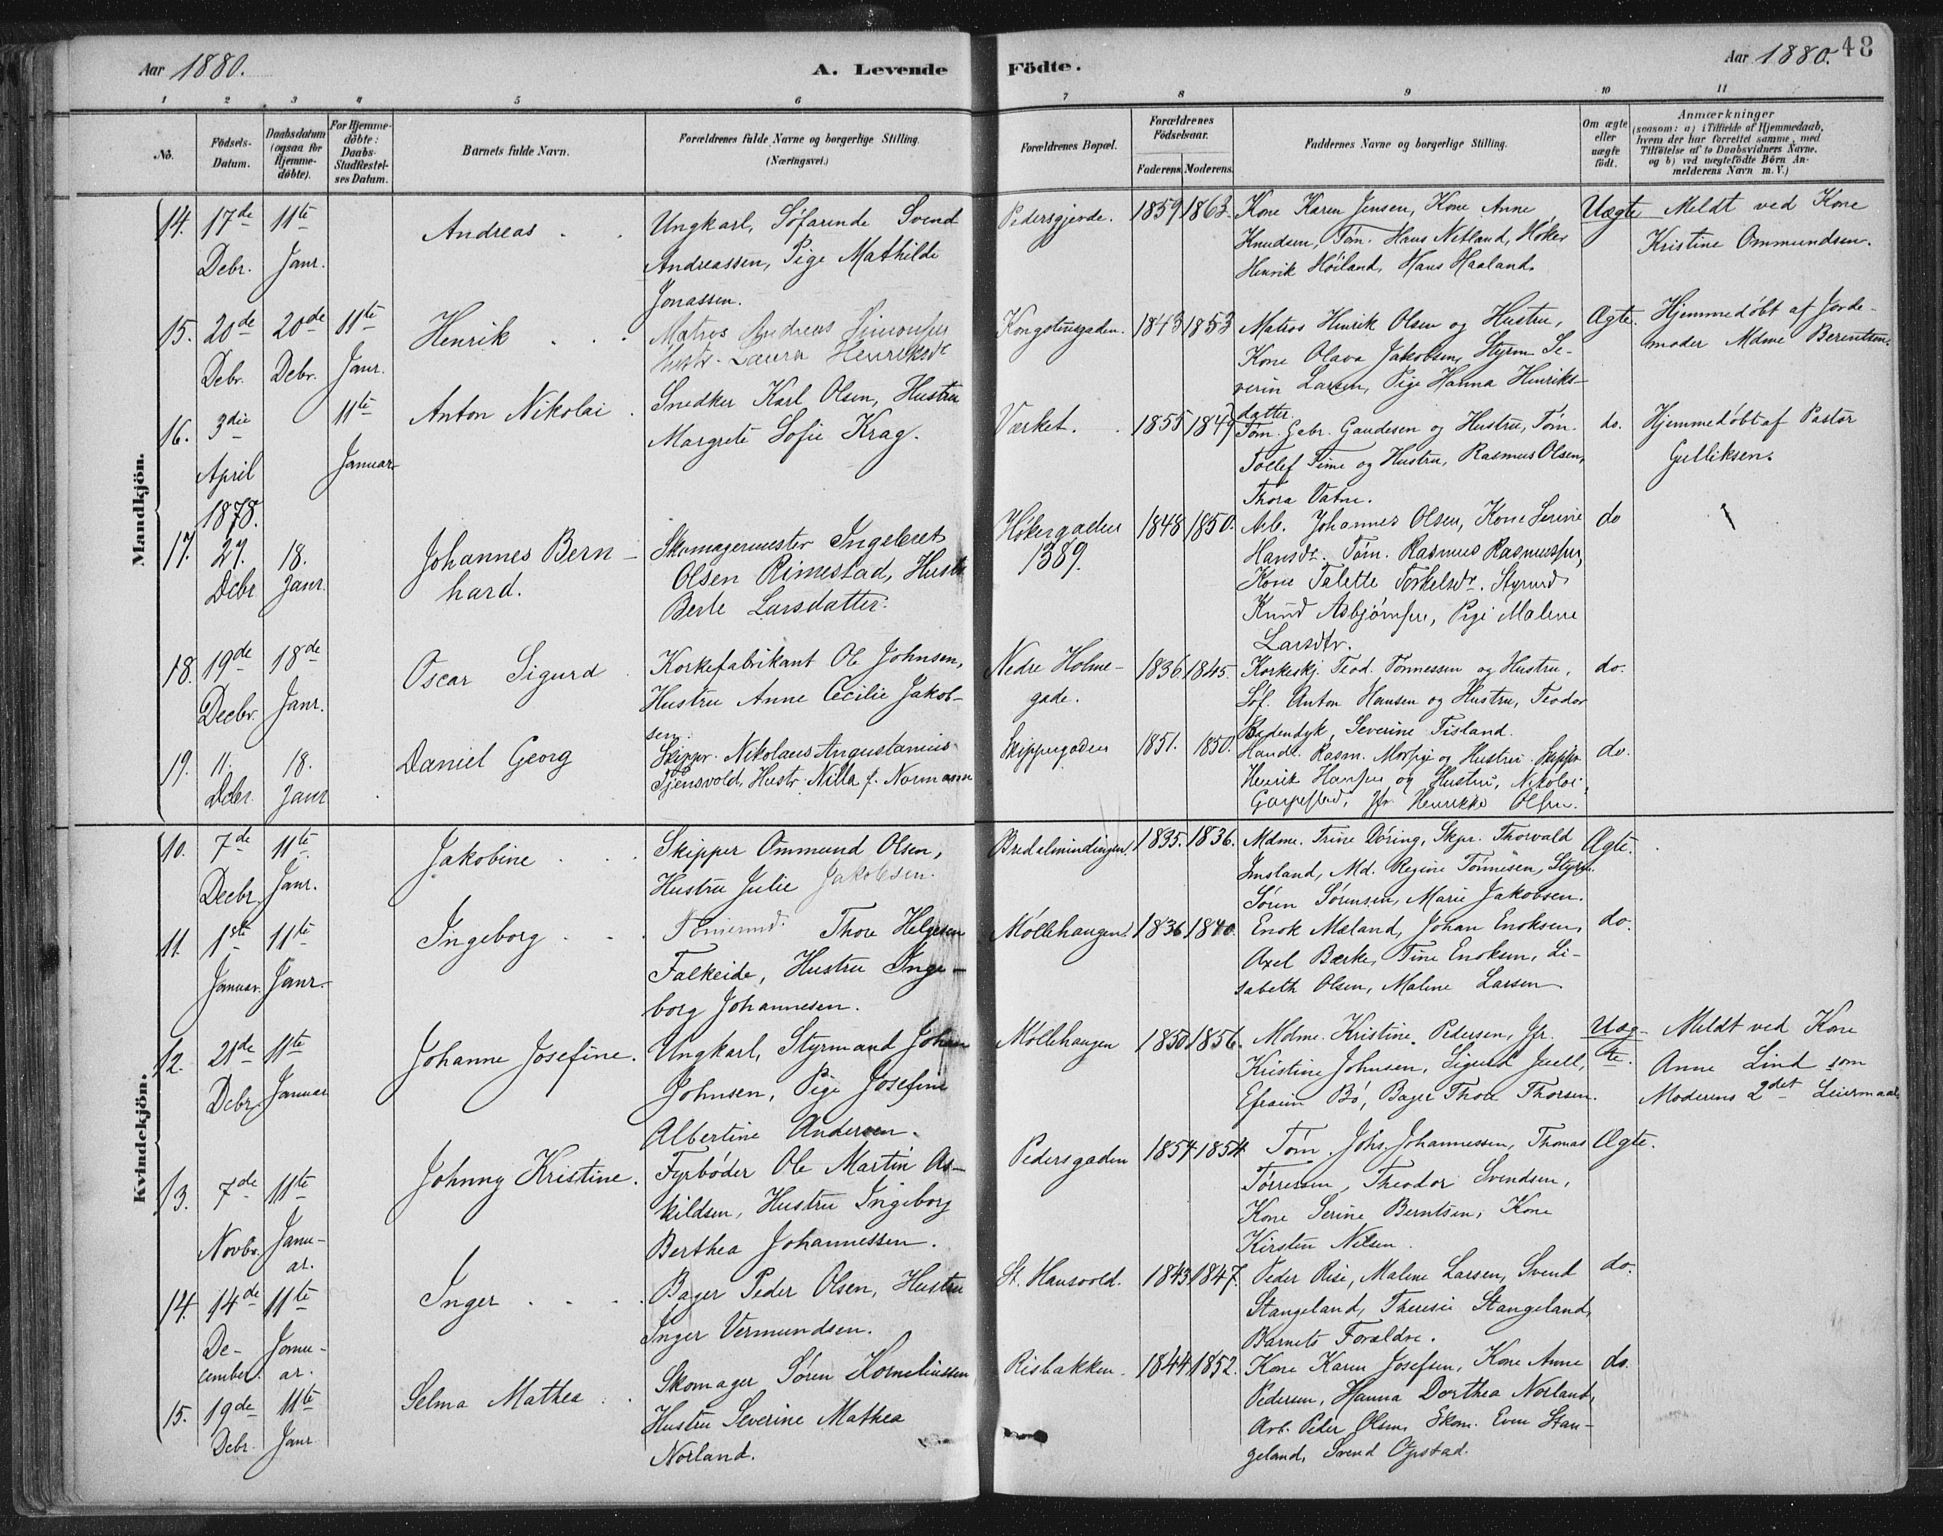 Aar 1880.
A. Levende Födte.
Aar 1880.
48
1 2 3 4 5 6 7 8 9 10 11
No.
Födsels-Datum.
Daabsdatum (ogsaa for Hjemmedöbte).
For Hjemmedöbte: Daabs-Stadfæstelses Datum.
Barnets fulde Navn.
Forældrenes fulde Navne og borgerlige Stilling.
(Næringsvei.)
Forældrenes Bopæl.
Forældrenes Födselsaar.
Faderens. Moderens.
Faddernes Navne og borgerlige Stilling.
Om ægte eller uægte födt.
Anmærkninger
(saasom: a) i Tilfælde af Hjemmedaab, hvem der har forrettet samme, med Tilföielse af to Daabsvidners Navne, og b) ved uægtefödte Börn Anmelderens Navn m. V.)
Mandkjön.
14. 17de Debr. 11te Janr. Andreas
Ungkarl, Søfarende Svend
Andreassen, Pige Mathilde
Jonassen.
Pedersgjerde. 1859 1863
Kone Karen Jensen, Kone Anne
Knudsen, Tøm. Hans Netland, Høker
Henrik Høiland, Hans Haaland.
Uægte
Meldt ved Kone
Kristine Ommundsen.
15. 20de Debr. 20de Debr. 11te Janr. Henrik
Matros Andreas Simonsen
Hustr. Laura Henriksdr
Kongstensgaden. 1843 1853
Matros Henrik Olsen og Hustru,
Kone Olava Jakobsen, Styrm. Se-
verin Larsen, Pige Hanna Henriks-
datter.
Ægte.
Hjemmedøbt af Jorde-
moder Mdme Berentsen.
16. 3die April 1878. 11te Januar Anton Nikolai
Snedker Karl Olsen, Hustru
Margrete Sofie Krag.
Værket. 1855 1849
Tøm. Gabr. Gaudesen og Hustru, Tøm.
Tollef Time og Hustru, Rasmus Olsen,
Thora Vatne.
do.
Hjemmedøbt af Pastor
Gulliksen.
17. 27. Dcbr. 18. Janr. Johannes Bern-
hard.
Skomagermester Ingebret
Olsen Rimestad, Hustr
Berte Larsdatter.
Høkergaden
1389.
1848 1850.
Arb. Johannes Olsen, Kone Serine
Hansdr. Tøm. Rasmus Rasmussen,
Kone Talette Torkelsdr. Styrmd
Knud Asbjørnsen, Pige Malene
Larsdtr.
do
18. 19de Decbr. 18de Janr. Oscar Sigurd
Korkefabrikant Ole Johnsen,
Hustru Anne Cecilie Jakob-
sen.
Nedre Holme-
gade.
1836. 1845.
Korkeskj. Teod. Tønnessen og Hustru,
Søf. Anton Hansen og Hustru, Teodor
Bødendyk, Severine Tisland.
do.
19. 11. Dcbr. 18. Janr Daniel Georg
Skippr. Nikolaus Augustanius
Tjensvold, Hustr. Nilla f. Normann
Skippergaden 1851. 1850.
Handl. Rasm. Morsige og Hustru, Skippr
Henrik Hansen og Hustru, Nikolai
Garpestad, Jfr Henrikke Olsen.
do.
Kvindekjön.
10. 7de Decbr. 11te Janr. Jakobine
Skipper Ommund Olsen,
Hustru Julie Jakobsen.
Bredalmindingen. 1835. 1836.
Mdme. Trine Døring, Skpr. Thorvald
Imsland, Md. Regine Tønnesen, Styrm.
Søren Sørensen, Marie Jakobsen.
Ægte.
11. 1ste Januar. 11te Janr. Ingeborg
Tømermd. Thore Helgesen
Falkeide, Hustru Inge-
borg Johannesen.
Møllehaugen. 1836 1840.
Enok Meland, Johan Enoksen,
Axel Bærke, Tine Enoksen, Li-
sabeth Olsen, Malene Larsen
do.
12. 28de Debr. 11te Januar Johanne Josefine.
Ungkarl, Styrmand Johan
Johnsen, Pige Josefine
Albertine Andersen.
Møllehaugen 1850. 1856.
Mdme. Kristine Pedersen, Jfr.
Kristine Johnsen, Sigurd Juell,
Efraim Bø, Bager Thore Thorsen.
Uæg-
te.
Meldt ved Kone
Anne Lind som
Moderens 2det Leiermaal
13. 7de Novbr. 11te Janu-
ar. Johnny Kristine.
Fyrbøder Ole Martin As-
kildsen, Hustru Ingeborg
Berthea Johannessen.
Pedersgaden 1854 1854
Tøm. Johs. Johannessen, Thomas
Tørressen, Theodor Svendsen,
Kone Serine Berntsen, Kone
Kirsten Nilsen.
Ægte.
14. 14de De-
cember. 11te Janu-
ar. Inger
Bager Peder Olsen, Hustru
Inger Vermundsen.
St. Hansvold. 1843 1847.
Peder Rise, Malene Larsen, Svend
Stangeland, Therese Stangeland,
Barnets Forældre.
do.
15. 19de Debr. 11te Janr. Selma Mathea
Skomager Søren Korneliussen
Hustru Severine Mathea
Norland.
Risbakken. 1844 1852.
Kone Karen Josefsen, Kone Anne
Pedersen, Hanna Dorthea Norland,
Arb. Peder Olsen, Skom. Even Stan-
geland, Svend Opstad.
do.